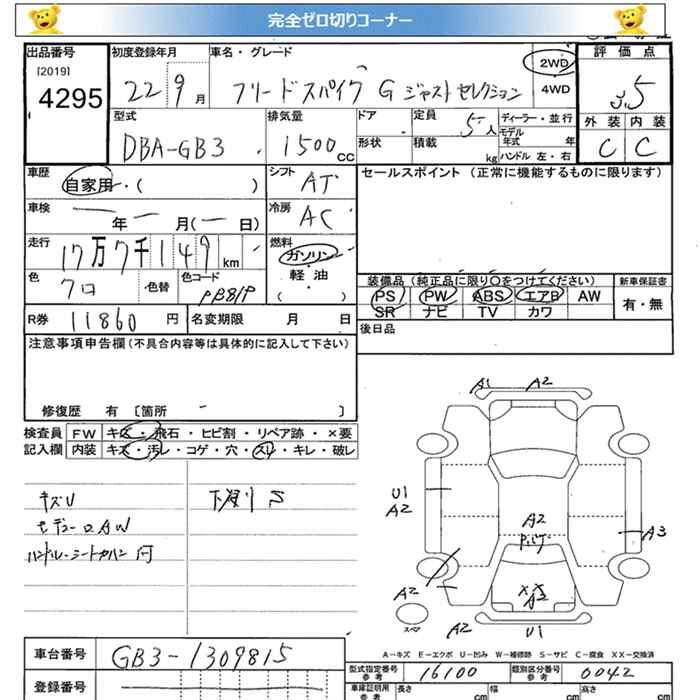 完全ゼロ切りコーナー
出品番号 初度登録年月 車名・グレード 評価点
[2019]
4295 22 9月 フリードスパイク G ジャストセレクション 2WD 4WD 3.5
型式 排気量 ドア 定員 5人 ディーラー・並行 外装 内装
DBA-GB3 1500CC 形状 積載 kg モデル年式 年 ハンドル 左・右 C C
車歴 自家用・( ) シフト AT セールスポイント (正常に機能するものに限ります)
車検 ー年 ー月(ー日) 冷房 AC
走行 17万7千149km 燃料 ガソリン
軽・油
( ・ )
色 クロ 色替 色コード 装備品 (純正品に限り〇をつけてください) 新車保証書
PS PW ABS エアB AW 有・無
SR ナビ TV カワ
R券 11860円 名変期限 月 日 後日品
注意事項申告欄(不具合内容等は具体的に記入して下さい)
修復歴 有 [箇所 ー ]
検査員 FW キズ・飛石・ヒビ割・リペア跡・×要
記入欄 内装 キズ・汚レ・コゲ・穴・スレ・キレ・破レ
A1 A2
キズU 下廻りS
モデューロAW
ハンドル・シートカバー付
U1
A2
A2
A3
A2
スペア
XX
A2
A2 U1
A-キズ E-エクボ U-凹み W-補修跡 S-サビ C-腐食 XX-交換済
車台番号 GB3-1309815
登録番号
型式指定番号 参考 16100 類別区分番号 参考 0042
車庫証明用 参考 長さ cm 幅 cm 高さ cm